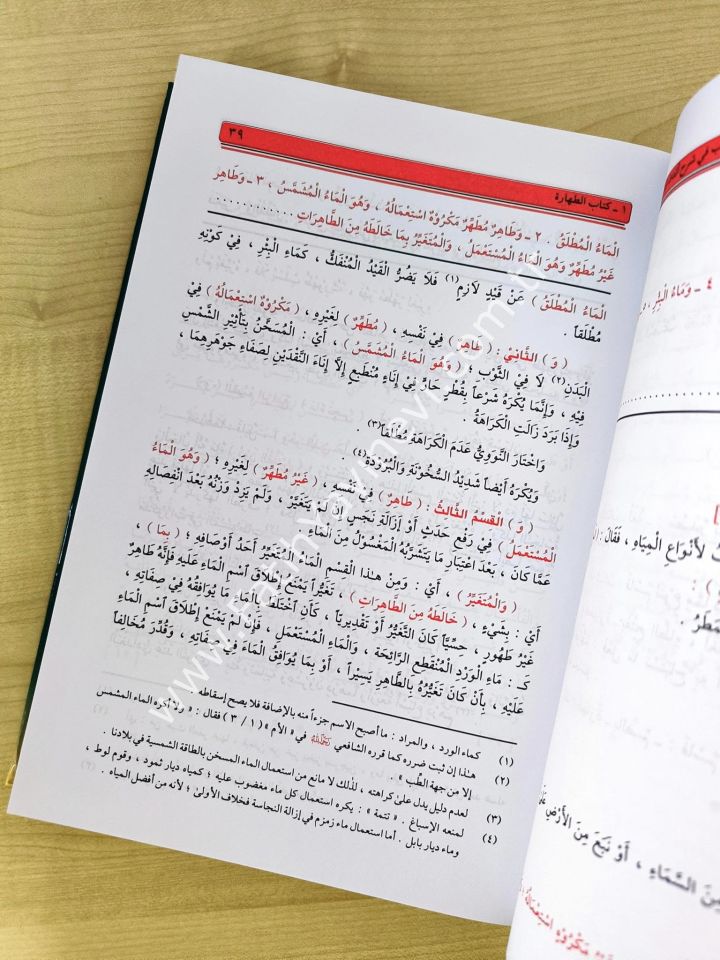 ١ - كتاب الطهارة ٣٩
الْمَاءُ الْمُطْلَقُ . ٢ - وَطَاهِرٌ مُطَهِّرٌ مَكْرُوهٌ اسْتِعْمَالُهُ ، وَهُوَ الْمَاءُ الْمُشَمَّسُ ، ٣ - وَطَاهِرٌ
غَيْرُ مُطَهِّرٌ وَهُوَ الْمَاءُ الْمُسْتَعْمَلُ ، وَالْمُتَغَيِّرُ بِمَا خَالَطَهُ مِنَ الطَّاهِرَاتِ . . . . . . . . . . . .
الْمَاءُ الْمُطْلَقُ ) عَنْ قَيْدٍ لَازِمٍ(١) فَلَا يَضُرُّ الْقَيْدُ الْمُنْفَكُّ ، كَمَاءِ الْبِئْرِ ، فِي كَوْنِهِ
مُطْلَقاً .
( وَ ) الثَّانِيْ : ( طَاهِرٌ ) فِيْ نَفْسِهِ ، ( مُطَهِّرٌ ) لِغَيْرِهِ ، ( مَكْرُوهٌ اسْتِعْمَالُهُ ) فِيْ
الْبَدَنِ(٢) لَا فِي الثَّوْبِ ؛ ( وَهُوَ الْمَاءُ الْمُشَمَّسُ ) ، أَيْ : الْمُسَخَّنُ بِتَأْثِيرِ الشَّمْسِ
فِيْهِ ، وَإِنَّمَا يُكْرَهُ شَرْعاً بِقُطْرٍ حَارٍّ فِيْ إِنَاءٍ مُنْطَبِعٍ إِلَّا إِنَاءَ النَّقْدَيْنِ لِصَفَاءِ جَوْهَرِهِمَا ،
وَإِذَا بَرَدَ زَالَتِ الْكَرَاهَةُ .
وَاخْتَارَ النَّوَوِيُّ عَدَمَ الْكَرَاهَةِ مُطْلَقاً(٣) .
وَيُكْرَهُ أَيْضاً شَدِيْدُ السُّخُوْنَةِ وَالْبُرُوْدَةِ(٤) .
( وَ ) الْقِسْمُ الثَّالِثُ : ( طَاهِرٌ ) فِيْ نَفْسِهِ ، ( غَيْرُ مُطَهِّرٌ ) لِغَيْرِهِ ؛ ( وَهُوَ الْمَاءُ
الْمُسْتَعْمَلُ ) فِيْ رَفْعِ حَدَثٍ أَوْ إِزَالَةِ نَجَسٍ إِنْ لَمْ يَتَغَيَّرْ ، وَلَمْ يَزِدْ وَزْنُهُ بَعْدَ انْفِصَالِهِ
عَمَّا كَانَ ، بَعْدَ اعْتِبَارِ مَا يَتَشَرَّبُهُ الْمَغْسُوْلُ مِنَ الْمَاءِ .
( وَالْمُتَغَيِّرُ ) ، أَيْ : وَمِنْ هٰذَا الْقِسْمِ الْمَاءُ الْمُتَغَيِّرُ أَحَدُ أَوْصَافِهِ ؛ ( بِمَا ) ،
أَيْ : بِشَيْءٍ ، ( خَالَطَهُ مِنَ الطَّاهِرَاتِ ) ، تَغَيُّراً يَمْنَعُ إِطْلَاقَ اسْمِ الْمَاءِ عَلَيْهِ فَإِنَّهُ طَاهِرٌ
غَيْرُ طَهُوْرٍ ، حِسِّيّاً كَانَ التَّغَيُّرُ أَوْ تَقْدِيرِيّاً ، كَأَنِ اخْتَلَطَ بِالْمَاءِ مَا يُوَافِقُهُ فِيْ صِفَاتِهِ ،
كَـ : مَاءِ الْوَرْدِ الْمُنْقَطِعِ الرَّائِحَةِ ، وَالْمَاءِ الْمُسْتَعْمَلِ ، فَإِنْ لَمْ يَمْنَعْ إِطْلَاقَ اسْمِ الْمَاءِ
عَلَيْهِ ، بِأَنْ كَانَ تَغَيُّرُهُ بِالطَّاهِرِ يَسِيْراً ، أَوْ بِمَا يُوَافِقُ الْمَاءَ فِيْ صِفَاتِهِ ، وَقُدِّرَ مُخَالِفاً
(١) كماء الورد ، والمراد : ما أصبح الاسم جزءاً منه بالإضافة فلا يصح إسقاطه .
(٢) هذا إن ثبت ضرره كما قرره الشافعي رَحِمَهُ اللهُ في « الأم » ( ١ / ٣ ) فقال : « ولا أكره الماء المشمس
إلا من جهة الطِّب » .
(٣) لعدم دليل يدل على كراهته ، لذلك لا مانع من استعمال الماء المسخن بالطاقة الشمسية في بلادنا .
(٤) لمنعه الإسباغ . « تتمة » : يكره استعمال كل ماء مغضوب عليه ؛ كمياه ديار ثمود ، وقوم لوط ،
وماء ديار بابل . أما استعمال ماء زمزم في إزالة النجاسة فخلاف الأولى ؛ لأنه من أفضل المياه .
٤ - وَمَاءُ الْبِئْرِ ،
لِأَنْوَاعِ الْمِيَاهِ ، فَقَالَ :
مِنَ السَّمَاءِ ، أَوْ نَبَعَ مِنَ الْأَرْضِ
مَكْرُوْهٍ اسْتِعْمَالُهُ
www.FatihYayinevi.com.tr